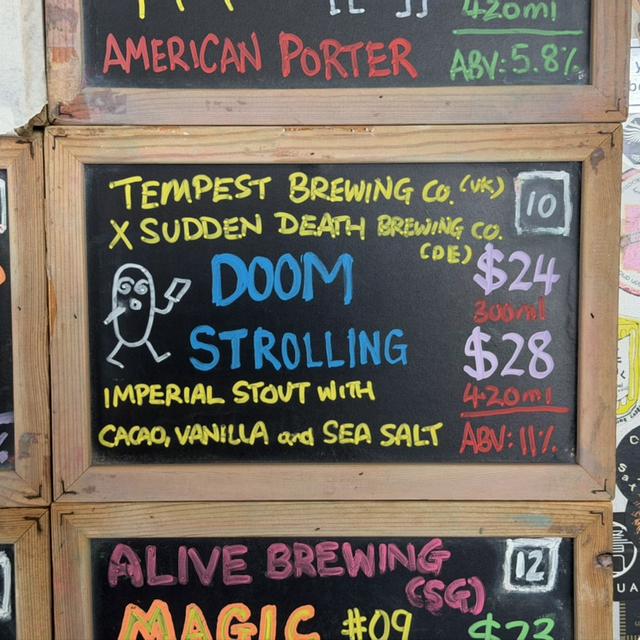 420ml
AMERICAN PORTER
ABV: 5.8%
TEMPEST BREWING CO. (UK)
10
X SUDDEN DEATH BREWING CO.
(DE)
DOOM
$24
300ml
STROLLING
$28
IMPERIAL STOUT WITH
420ml
CACAO, VANILLA and SEA SALT
ABV: 11%
ALIVE BREWING
12
(SG)
MAGIC #09